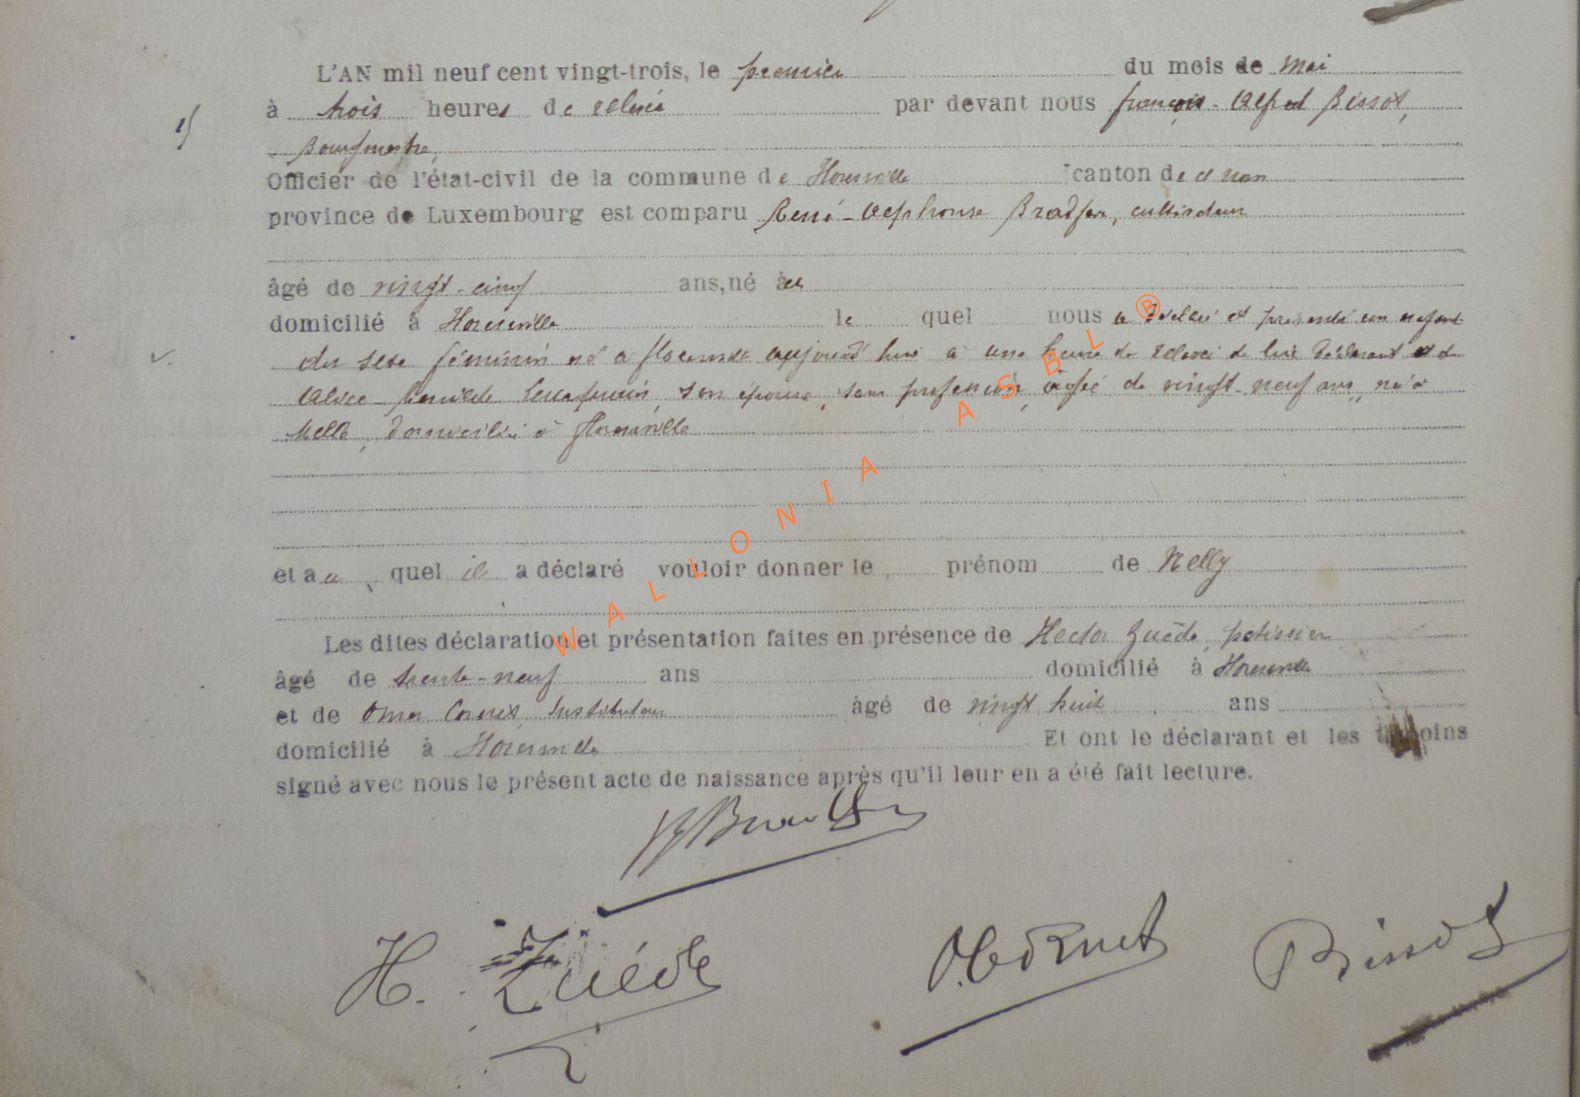 L'AN mil neuf cent vingt-trois, le premier du mois de Mai
à trois heures de relevée par devant nous françois-Alfred Bissot,
Bourgmestre,
Officier de l'état-civil de la commune de canton de
province de Luxembourg est comparu René-Alphonse cultivateur
âgé de vingt-cinq ans, né à
domicilié à le quel nous a déclaré et présenté un enfant
du sexe féminin né à aujourd'hui à une heure de relevée de lui déclarant et de
Alice son épouse, sans profession, âgée de vingt-neuf ans, née à
domiciliée à
et au quel il a déclaré vouloir donner le prénom de Nelly
Les dites déclaration et présentation faites en présence de Hector Zuède, patissier
âgé de trente-neuf ans domicilié à
et de Omer Cornet, Instituteur âgé de vingt huit ans
domicilié à Et ont le déclarant et les témoins
signé avec nous le présent acte de naissance après qu'il leur en a été fait lecture.
H. Zuède O. Cornet Bissot
WALLONIA ASBL ®